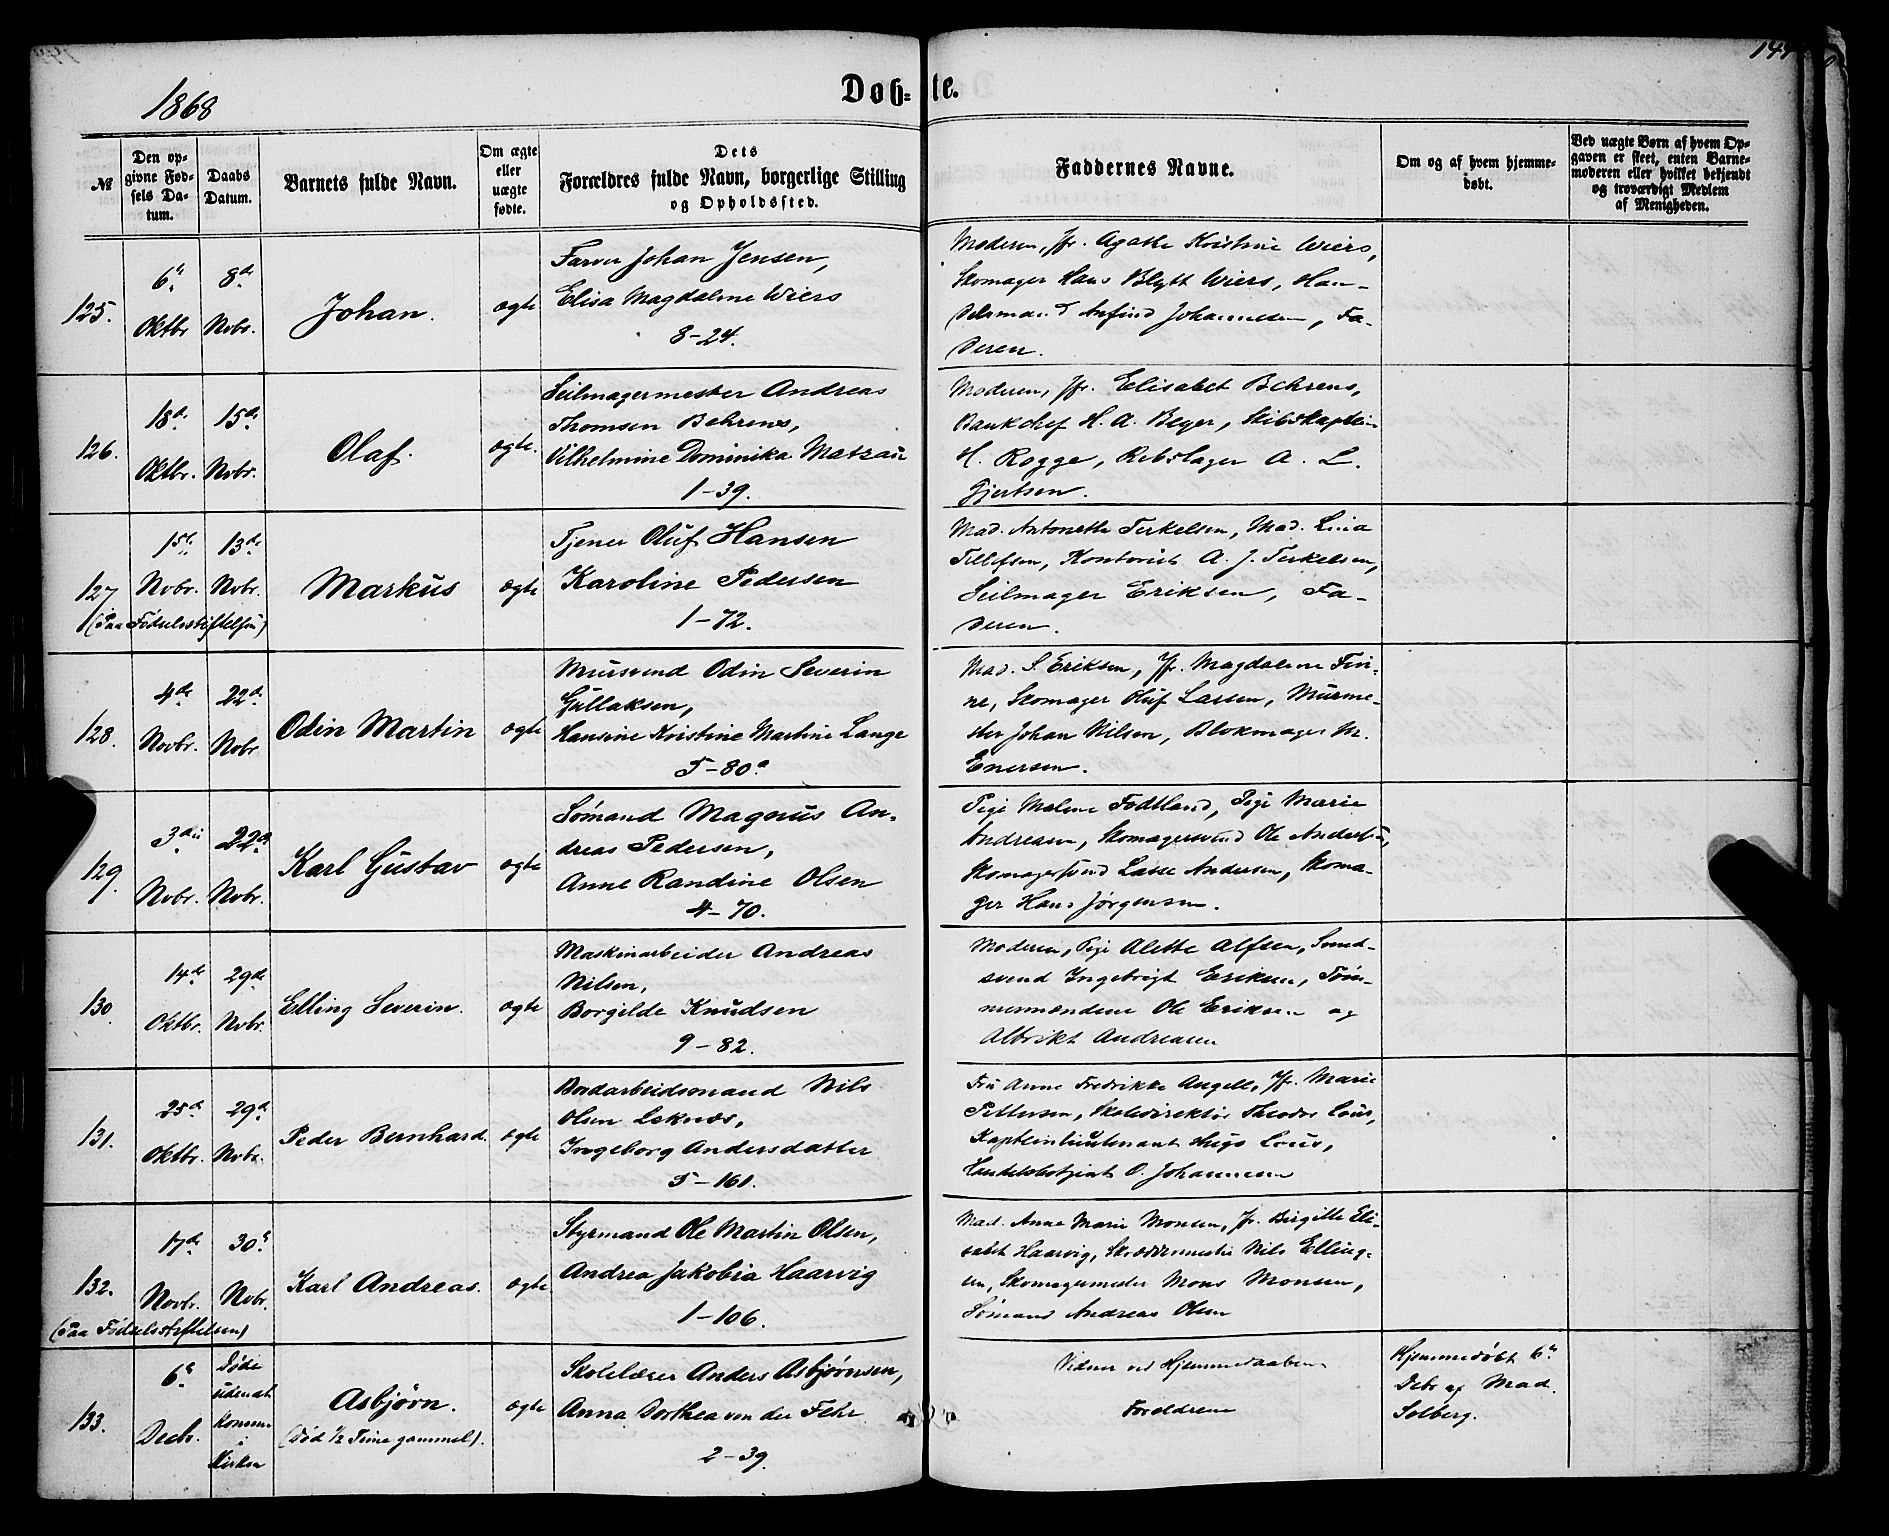 1868
Døb-te.
144
№
Den op-
givne Fød-
sels Da-
tum.
Daabs
Datum.
Barnets fulde Navn.
Om ægte
eller
uægte
fødte.
Dets
Forældres fulde Navn, borgerlige Stilling
og Opholdssted.
Faddernes Navne.
Om og af hvem hjemme-
døbt.
Ved uægte Børn af hvem Op-
gaven er skeet, enten Barne-
moderen eller hvilket bekjendt
og troværdigt Medlem
af Menigheden.
125.
6te
Oktbr
8de
Nvbr.
Johan.
ægte
Farver Johan Jensen,
Elisa Magdalene Wiers
8-24.
Moderen, Jfr. Agathe Kristine Wiers,
Skomager Hans Blytt Wiers, Han-
delsmand Anfind Johannesen, Fa-
deren.
126.
18de
Oktbr.
15de
Nvbr.
Olaf.
ægte.
Seilmagermester Andreas
Thomsen Behrens,
Vilhelmine Dominika Matzau
1-39.
Moderen, Jfr. Elisabet Behrens,
Bankchef H. A. Beyer, Skibskaptein
H. Rogge, Rebslager A. L.
Gjertsen.
127
1ste
Nvbr.
13de
Nvbr.
(Paa Fødselsstiftelsen)
Markus
ægte
Tjener Oluf Hansen
Karoline Pedersen
1-72.
Mad. Antonette Terkelsen, Mad. Lina
Tellefsen, Kontorist A. J. Terkelsen,
Seilmager Eriksen, Fa-
deren.
128.
4de
Novbr.
22de
Nvbr.
Odin Martin
ægte
Mursvend Odin Severin
Gullaksen,
Hansine Kristine Martine Lange
5-80a
Mad. S. Eriksen, Jfr. Magdalene Fin-
ne, Skomager Oluf Larsen, Murme-
ster Johan Nilsen, Blokmager M.
Enersen.
129.
3die
Nvbr.
22de
Nvbr.
Karl Gustav
ægte
Sømand Magnus An-
dreas Pedersen,
Anne Randine Olsen
4-70.
Pige Malene Fodtland, Pige Marie
Andreasen, Skomagersvend Ole Andersen,
Skomagersvend Lasse Andersen, Skoma-
ger Hans Jørgensen.
130.
14de
Oktbr.
29de
Nvbr.
Elling Severin.
ægte
Maskinarbeider Andreas
Nilsen,
Borgilde Knudsen
9-82.
Moderen, Pige Alette Alfsen, Smed-
svend Ingebrigt Eriksen, Tøm-
mermændene Ole Eriksen og
Albrikt Andreasen
131.
25de
Oktbr.
29de
Nvbr.
Peder Bernhard.
ægte
Bordarbeidsmand Nils
Olsen Leknæs,
Ingeborg Andersdatter
5-161.
Fru Anne Fredrikke Angell, Jfr. Marie
Pettersen, Skoledirektør Theodor Lous,
Kapteinlieutenant Hugo Lous,
Handelsbetjent O. Johannesen
132.
17de
Novbr.
30te
Nvbr.
(Paa Fødselsstiftelsen)
Karl Andreas.
ægte
Styrmand Ole Martin Olsen,
Andrea Jakobia Haarvig
1-106.
Mad. Anne Marie Monsen, Jfr. Birgitte Eli-
sabet Haarvig, Skræddermester Nils Elling-
sen, Skomagermester Mons Monsen,
Sømand Andreas Olsen
133.
6te
Decbr.
Døde
uden at
komme
i
Kirken
Asbjørn.
(Død 1/2 Time gammel).
ægte
Skolelærer Anders Asbjørnsen,
Anna Dorthea von der Fehr
2-39.
Vidner ved Hjemmedaaben
Forældrene
Hjemmedøbt 6te
Debr af Mad.
Solberg.